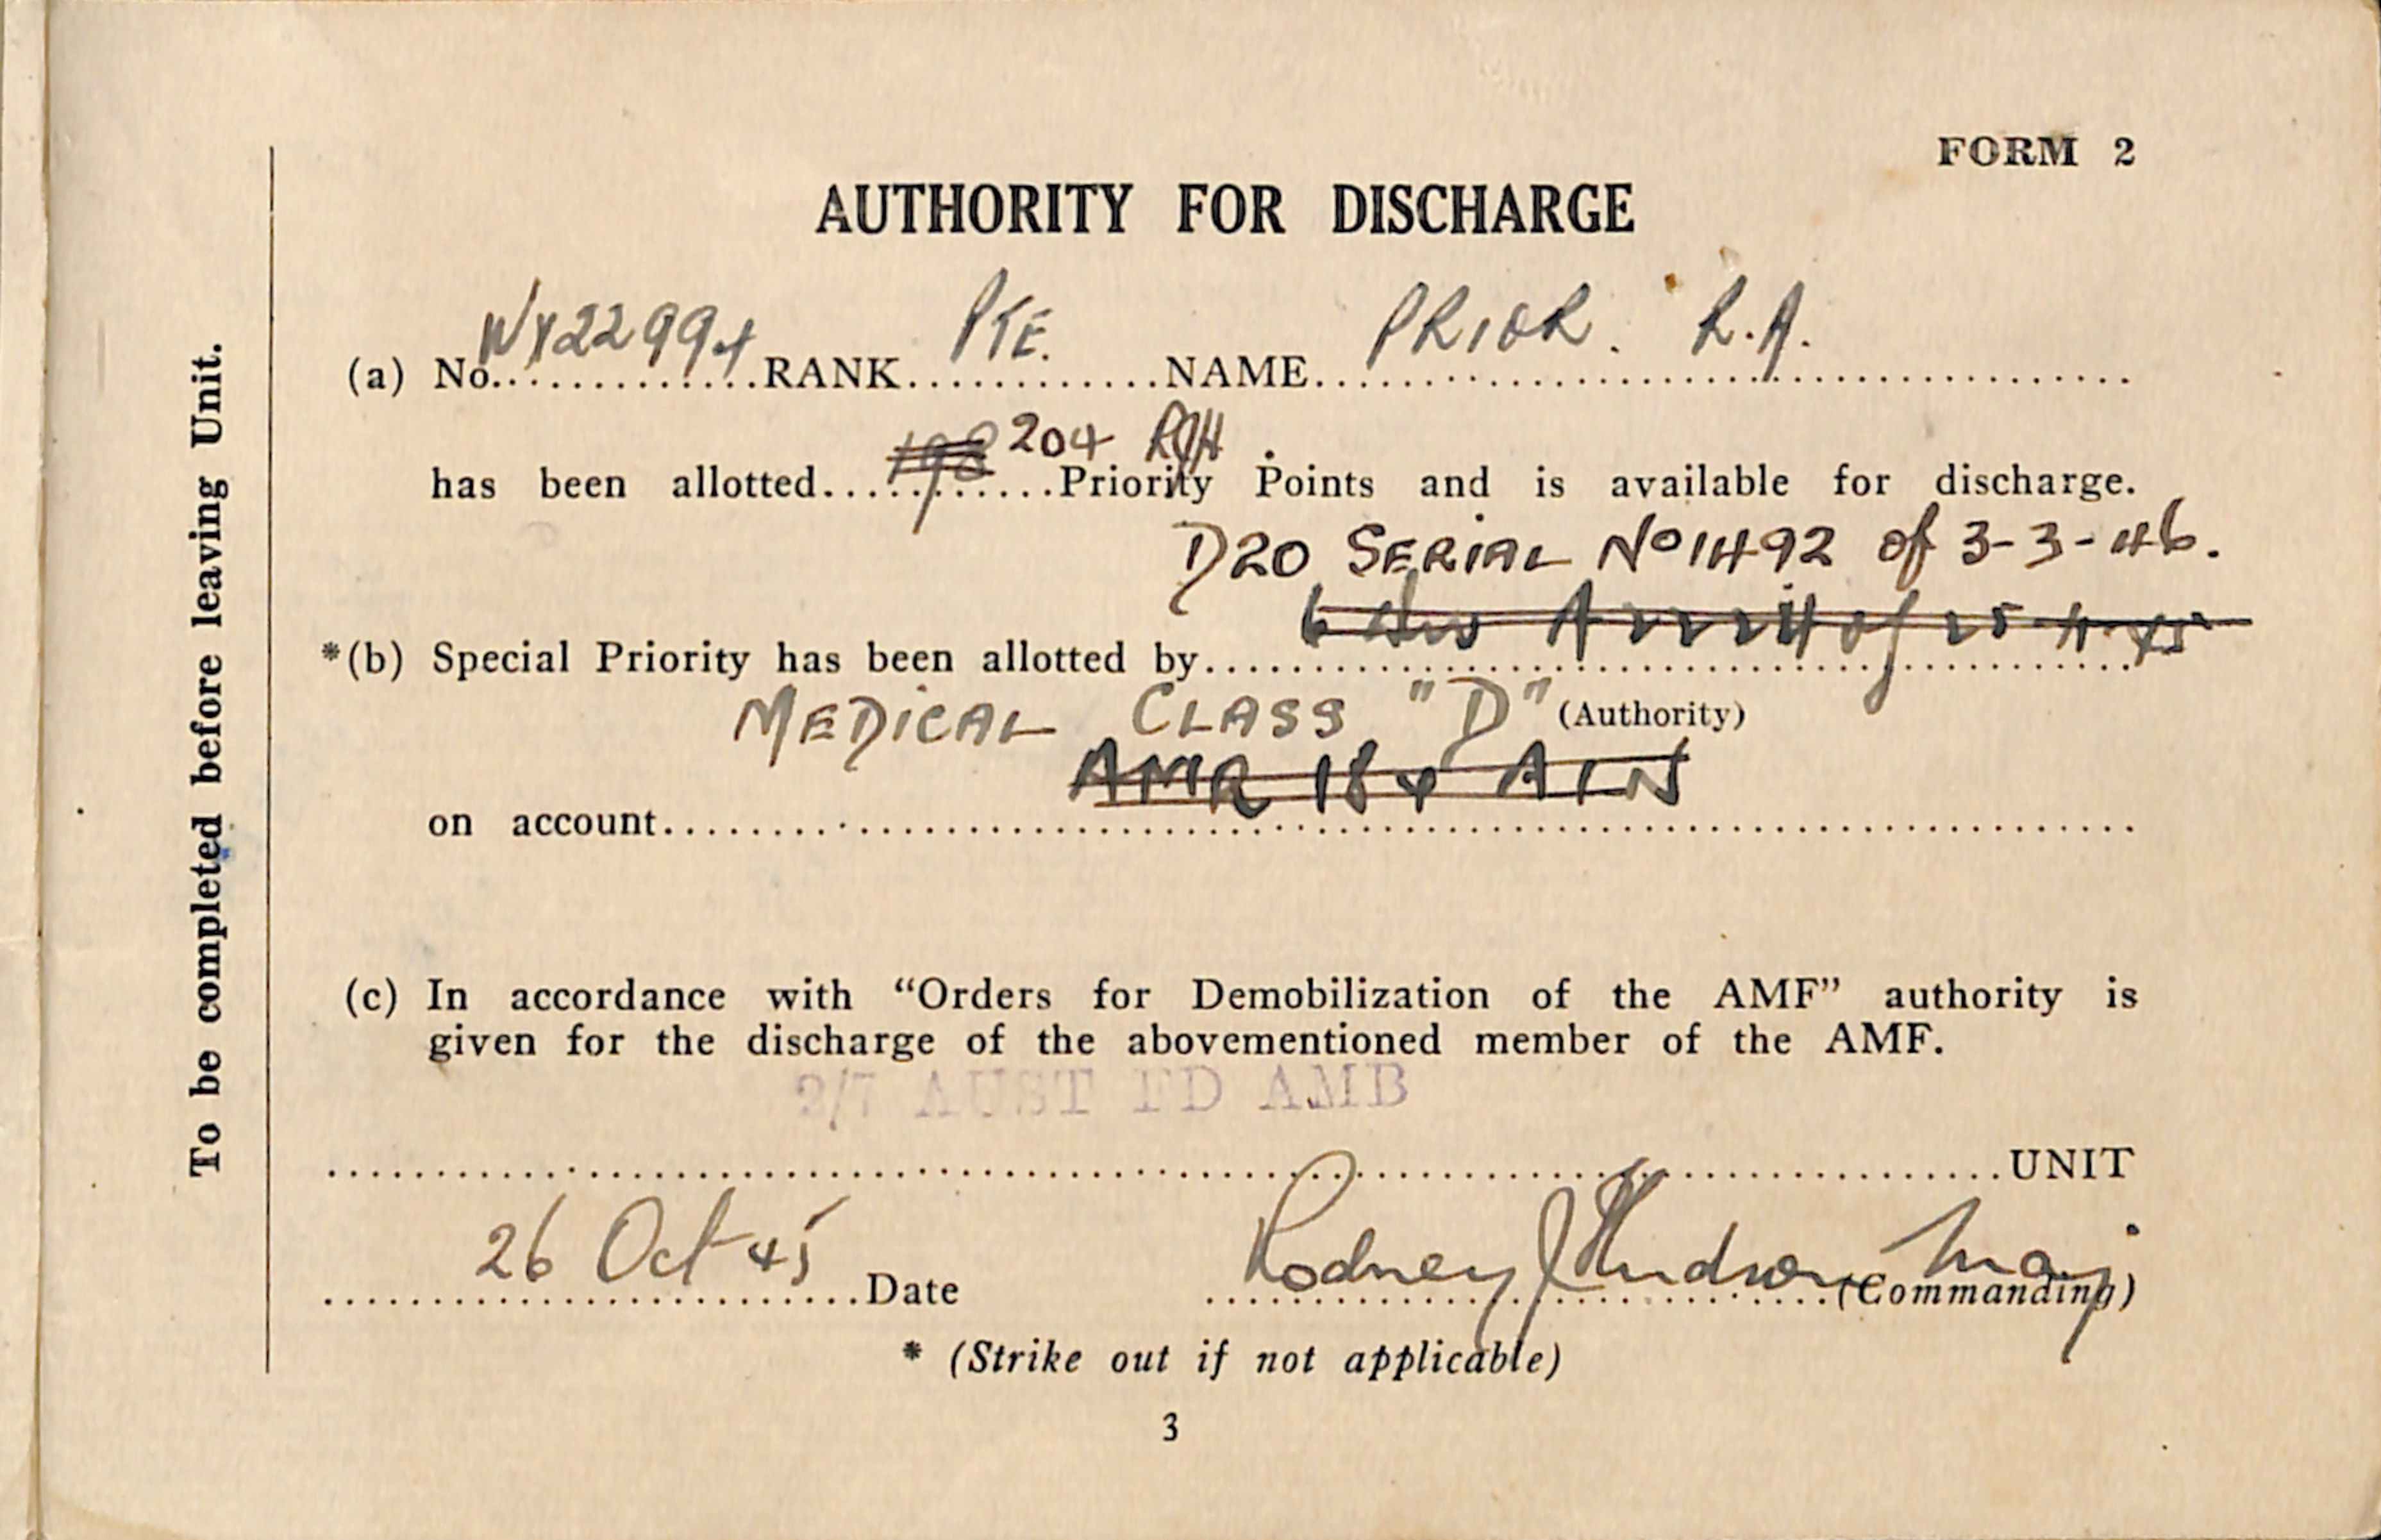 FORM 2
AUTHORITY FOR DISCHARGE
To be completed before leaving Unit.
(a) No. WX22994 RANK PTE. NAME PRIOR. R.A.
198 204
has been allotted.............Priority Points and is available for discharge.
D20 SERIAL No 1492 of 3-3-46.
*(b) Special Priority has been allotted by
MEDICAL CLASS "D" (Authority)
AMR 184
on account
(c) In accordance with “Orders for Demobilization of the AMF” authority is
given for the discharge of the abovementioned member of the AMF.
2/7 AUST FD AMB
UNIT
26 Oct 45 Date Rodney J Hudson Maj (Commanding)
* (Strike out if not applicable)
3